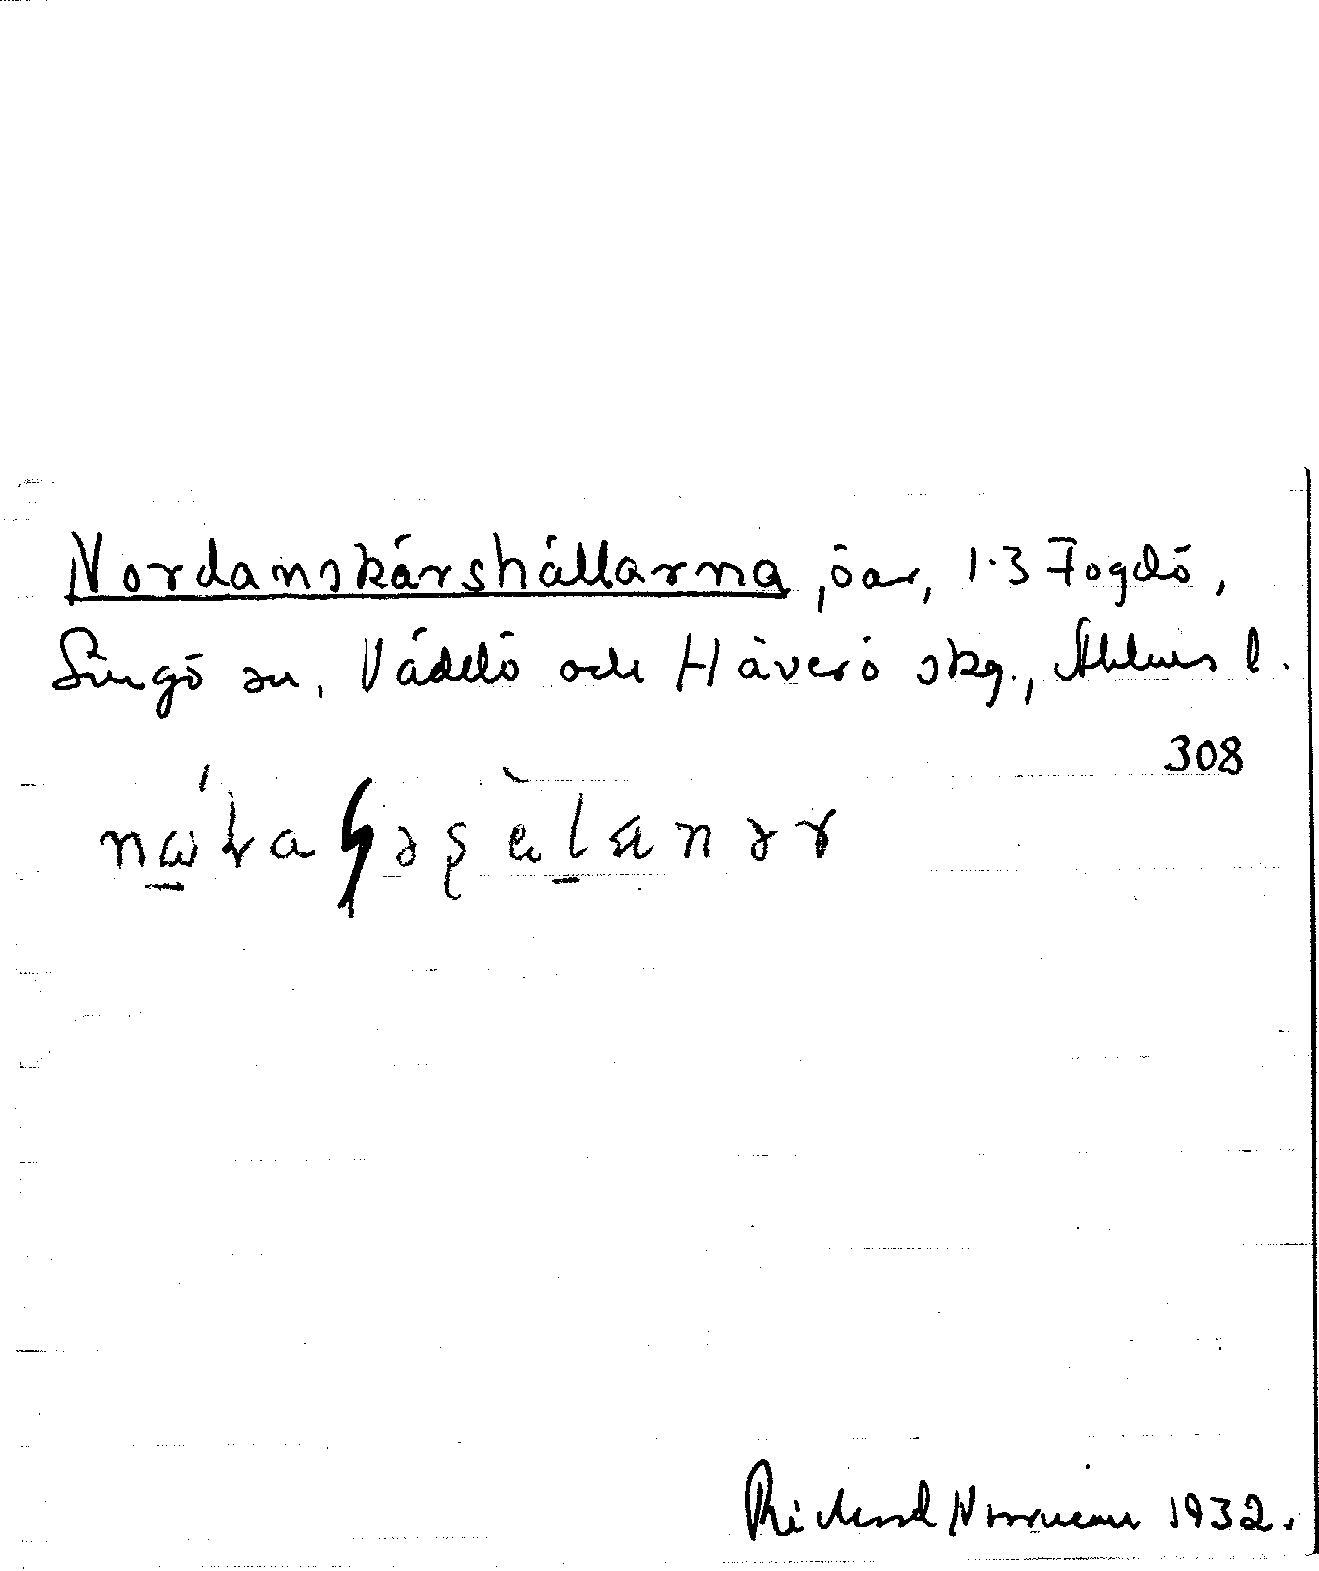 Nordanskärshällarna, öar, 1.3 Fogdö,
Singö sn, Väddö och Häverö skg., Sthlms l.
308
Rickard Norrman 1932.